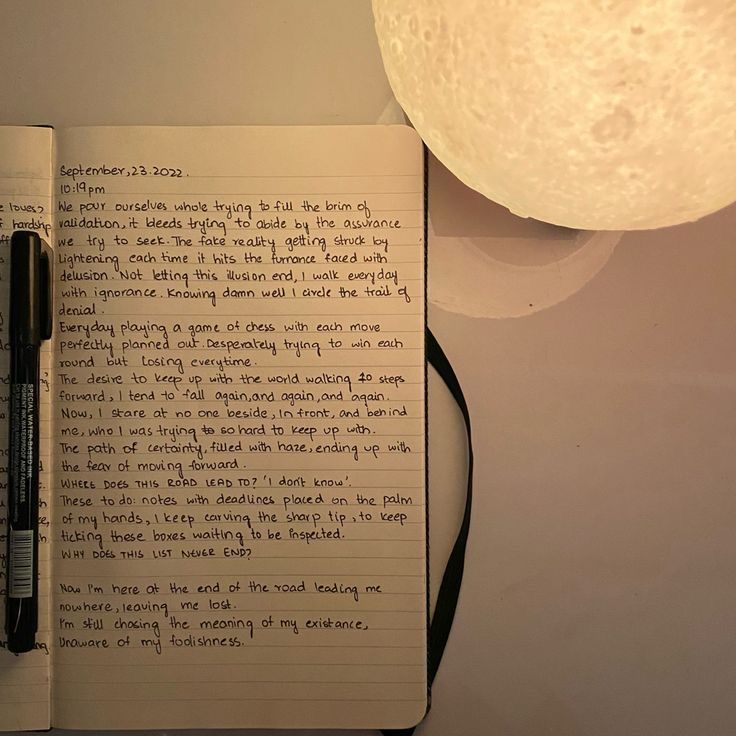 September,23.2022.
10:19pm
We pour ourselves whole trying to fill the brim of
validation, it bleeds trying to abide by the assurance
we try to seek. The fake reality getting struck by
lightening each time it hits the furnance faced with
delusion. Not letting this illusion end, I walk everyday
with ignorance. Knowing damn well I circle the trail of
denial.
Everyday playing a game of chess with each move
perfectly planned out. Desperately trying to win each
round but losing everytime.
The desire to keep up with the world walking 10 steps
forward, I tend to fall again, and again, and again.
Now, I stare at no one beside, in front, and behind
me, who I was trying to so hard to keep up with.
The path of certainty, filled with haze, ending up with
the fear of moving forward.
WHERE DOES THIS ROAD LEAD TO? 'I don't know'.
These to do: notes with deadlines placed on the palm
of my hands, I keep carving the sharp tip, to keep
ticking these boxes waiting to be inspected.
WHY DOES THIS LIST NEVER END?
Now I'm here at the end of the road leading me
nowhere, leaving me lost.
I'm still chasing the meaning of my existance,
Unaware of my foolishness.
e loves?
f hardship
SPECIAL WATER-BASED INK
PIGMENT INK, WATERPROOF AND FADELESS